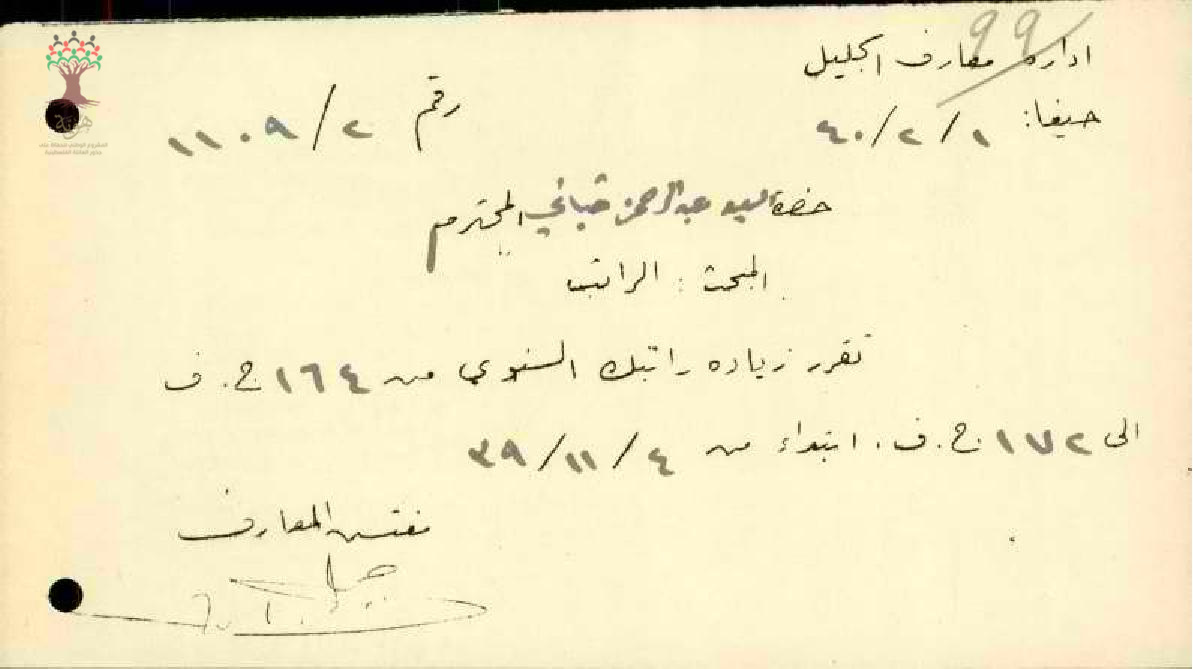 99
ادارة معارف الجليل
حيفا: ١/٢/٤٠
رقم ٢/١١٠٩
حضرة السيد عبدالرحمن المحترم
المبحث: الراتب
تقرر زياده راتبك السنوي من ١٦٤ ج. ف
الى ١٧٢ ج. ف. ابتداء من ٤/١١/٣٩
مفتش المعارف
هوية